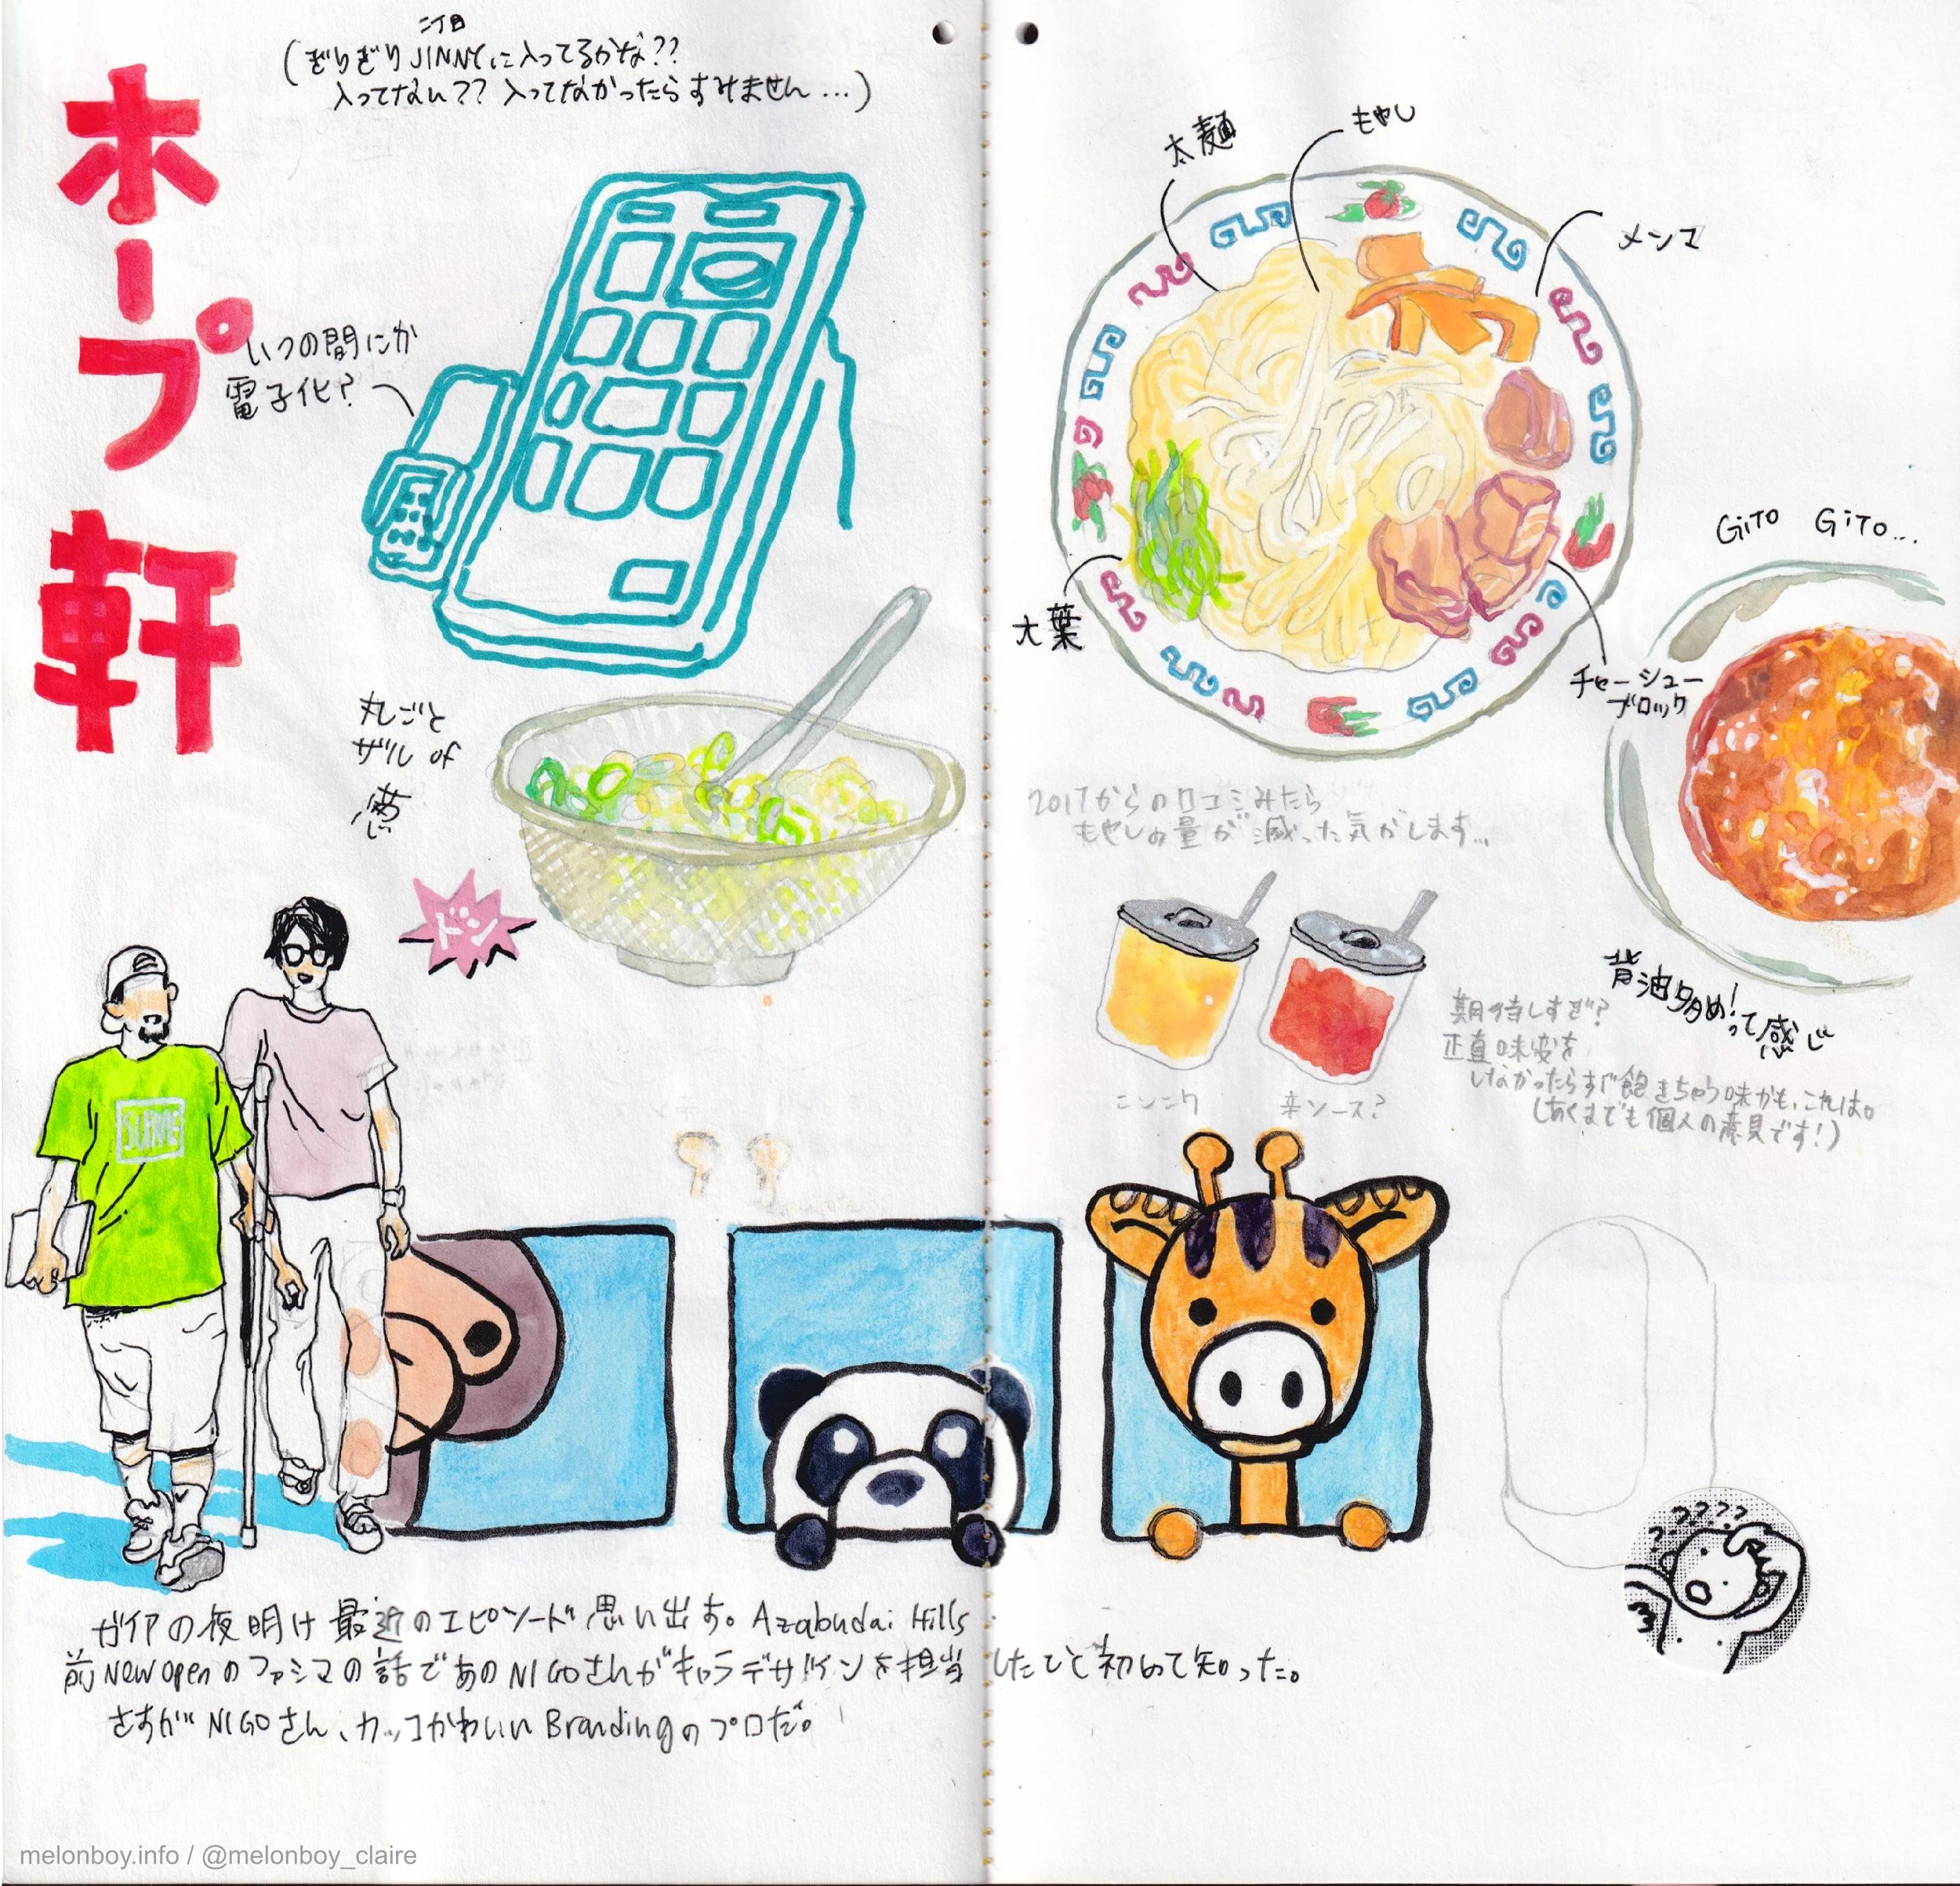 ホープ軒
二丁目
(ぎりぎりJINNYに入ってるかな??
入ってない?? 入ってなかったらすみません...)
いつの間にか
電子化?
丸ごと
ザル of
葱
ドン
太麺
もやし
メンマ
大葉
チャーシュー
ブロック
GiTO GiTO...
背油多め!って感じ
2017からの口コミみたら
もやしの量が減った気がします...
ニンニク
辛ソース?
期待しすぎ?
正直味変を
しなかったらすぐ飽きちゃう味かも、これは。
(あくまでも個人の意見です!)
?????
ガイアの夜明け最近のエピソード思い出す。Azabudai Hills
前New Openのファミマの話であのNIGOさんがキャラデザインを担当したこと初めて知った。
さすがNIGOさん、カッコかわいいBrandingのプロだ。
melonboy.info / @melonboy_claire